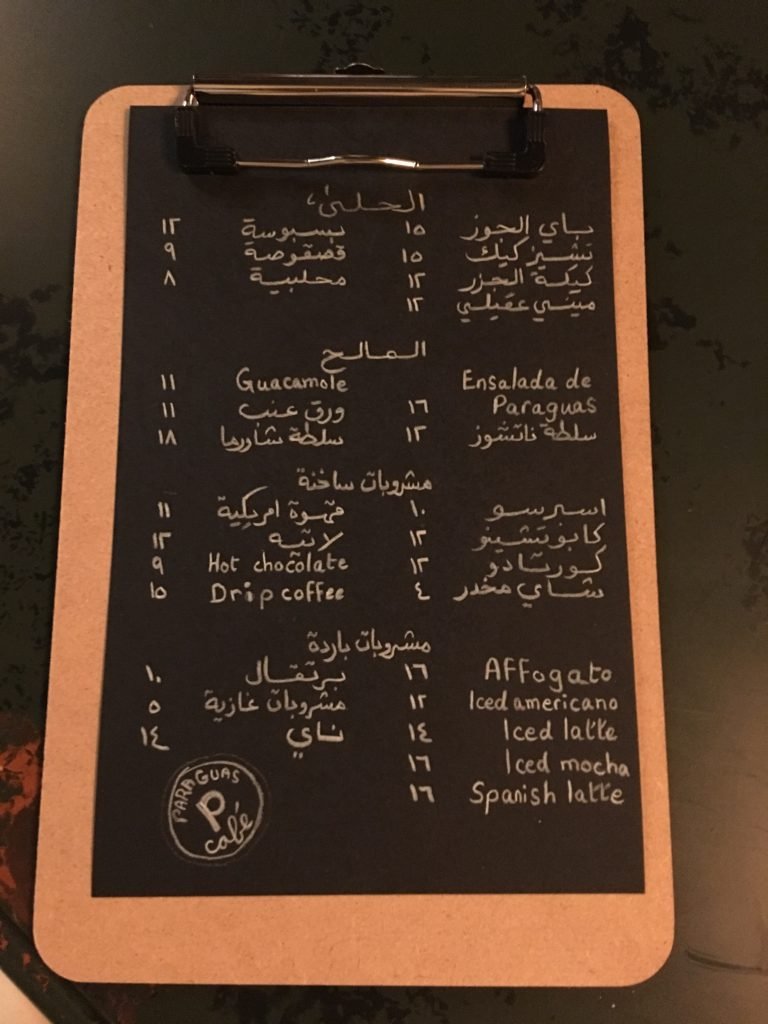 الحلى،
باي الجوز ١٥ بسبوسة ١٢
تشيز كيك ١٥ قصقوصة ٩
كيكة الجزر ١٢ محلبية ٨
ميني عقيلي ١٢
المالح
Ensalada de Guacamole ١١
Paraguas ١٦ ورق عنب ١١
سلطة ناتشوز ١٢ سلطة شاورما ١٨
مشروبات ساخنة
اسبرسو ١٠ قهوة امريكية ١١
كابوتشينو ١٢ لاتيه ١٢
كورتادو ١٢ Hot chocolate ٩
شاي مخدر ٤ Drip coffee ١٥
مشروبات باردة
Affogato ١٦ برتقال ١٠
Iced americano ١٢ مشروبات غازية ٥
Iced latte ١٤ ناي ١٤
Iced mocha ١٦
Spanish latte ١٦
PARAGUAS
P
café